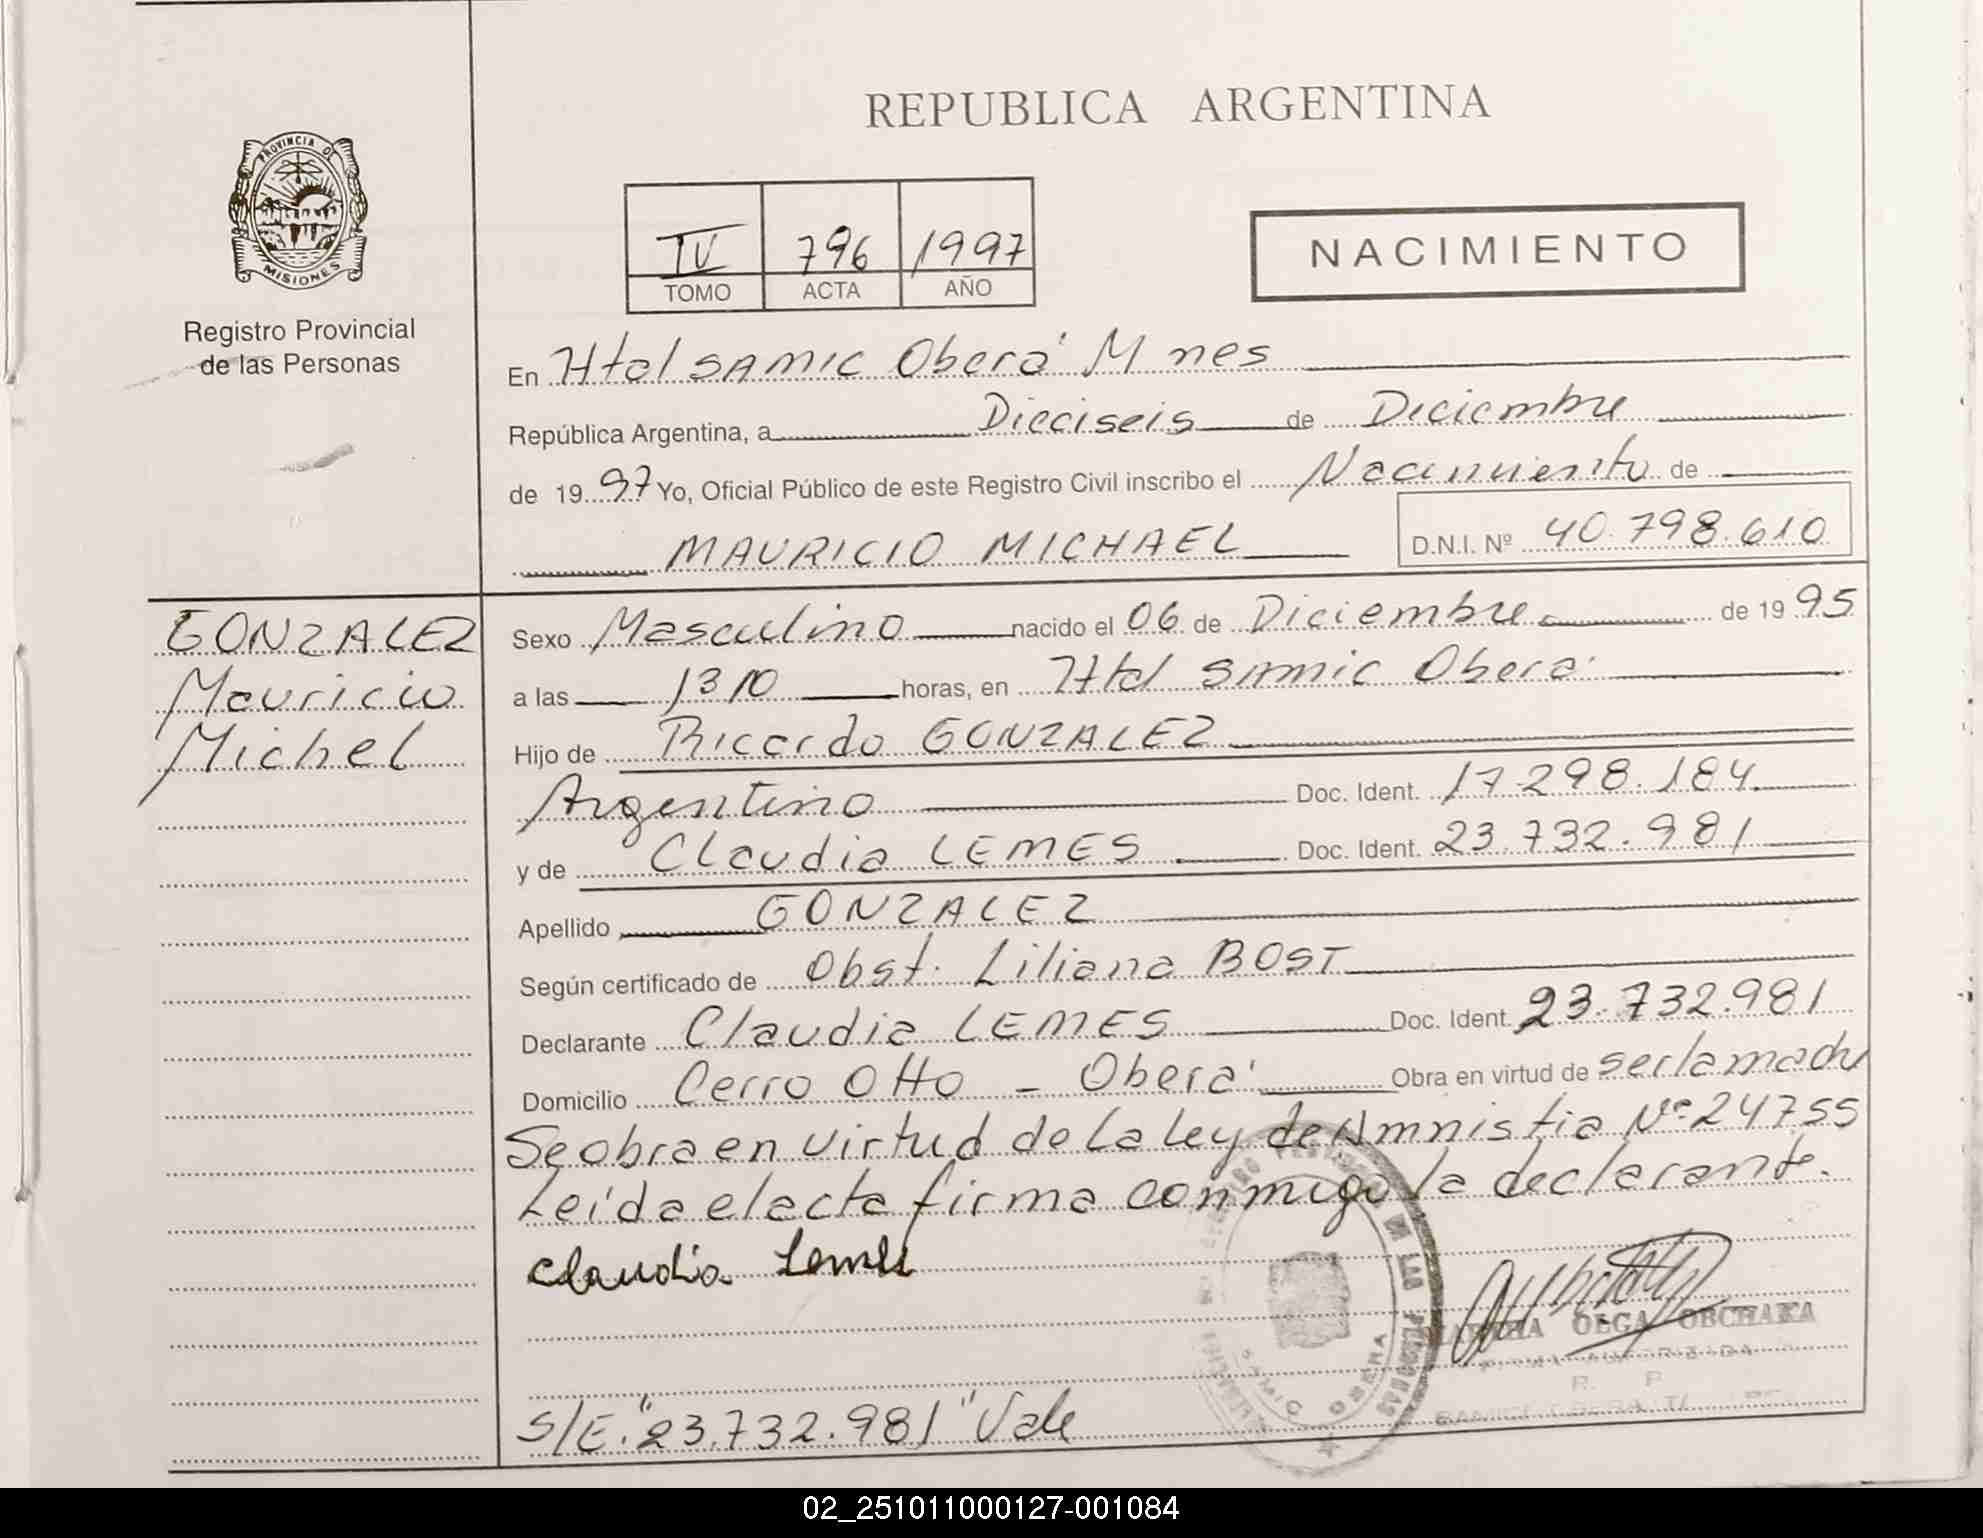 REPUBLICA ARGENTINA
PROVINCIA DE
MISIONES
Registro Provincial
de las Personas
IV 796 1997
TOMO ACTA AÑO
NACIMIENTO
En Htal SAMIC Oberá Mnes
República Argentina, a Dieciseis de Diciembre
de 1997 Yo, Oficial Público de este Registro Civil inscribo el Nacimiento de
MAURICIO MICHAEL D.N.I. Nº 40.798.610
GONZALEZ
Mauricio
Michel
Sexo Masculino nacido el 06 de Diciembre de 1995
a las 13 10 horas, en Htal SAMIC Oberá
Hijo de Ricardo GONZALEZ
Argentino Doc. Ident. 17.298.184
y de Claudia LEMES Doc. Ident. 23.732.981
Apellido GONZALEZ
Según certificado de Obst. Liliana BOST
Declarante Claudia LEMES Doc. Ident. 23.732.981
Domicilio Cerro Otto - Oberá Obra en virtud de ser la madre
Se obra en virtud de la Ley de Amnistia Nº 24755
Leída el acta firma conmigo la declarante.
Claudia Lemes
OLGA OBCHAKA
S/E. "23.732.981" Vale
02_251011000127-001084